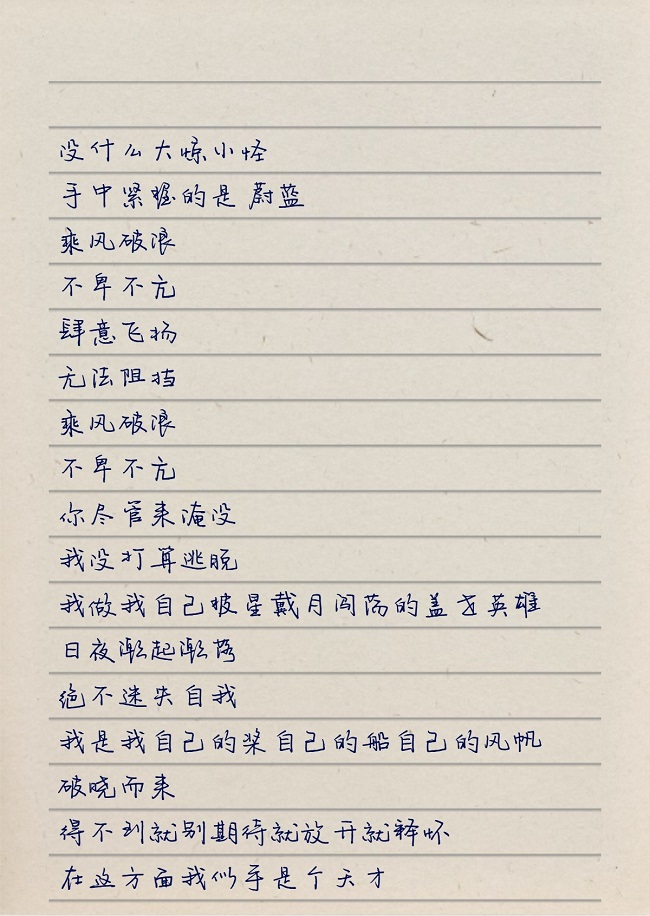 没什么大惊小怪
手中紧握的是蔚蓝
乘风破浪
不卑不亢
肆意飞扬
无法阻挡
乘风破浪
不卑不亢
你尽管来淹没
我没打算逃脱
我做我自己披星戴月闯荡的盖世英雄
日夜潮起潮落
绝不迷失自我
我是我自己的桨自己的船自己的风帆
破晓而来
得不到就别期待就放开就释怀
在这方面我似乎是个天才